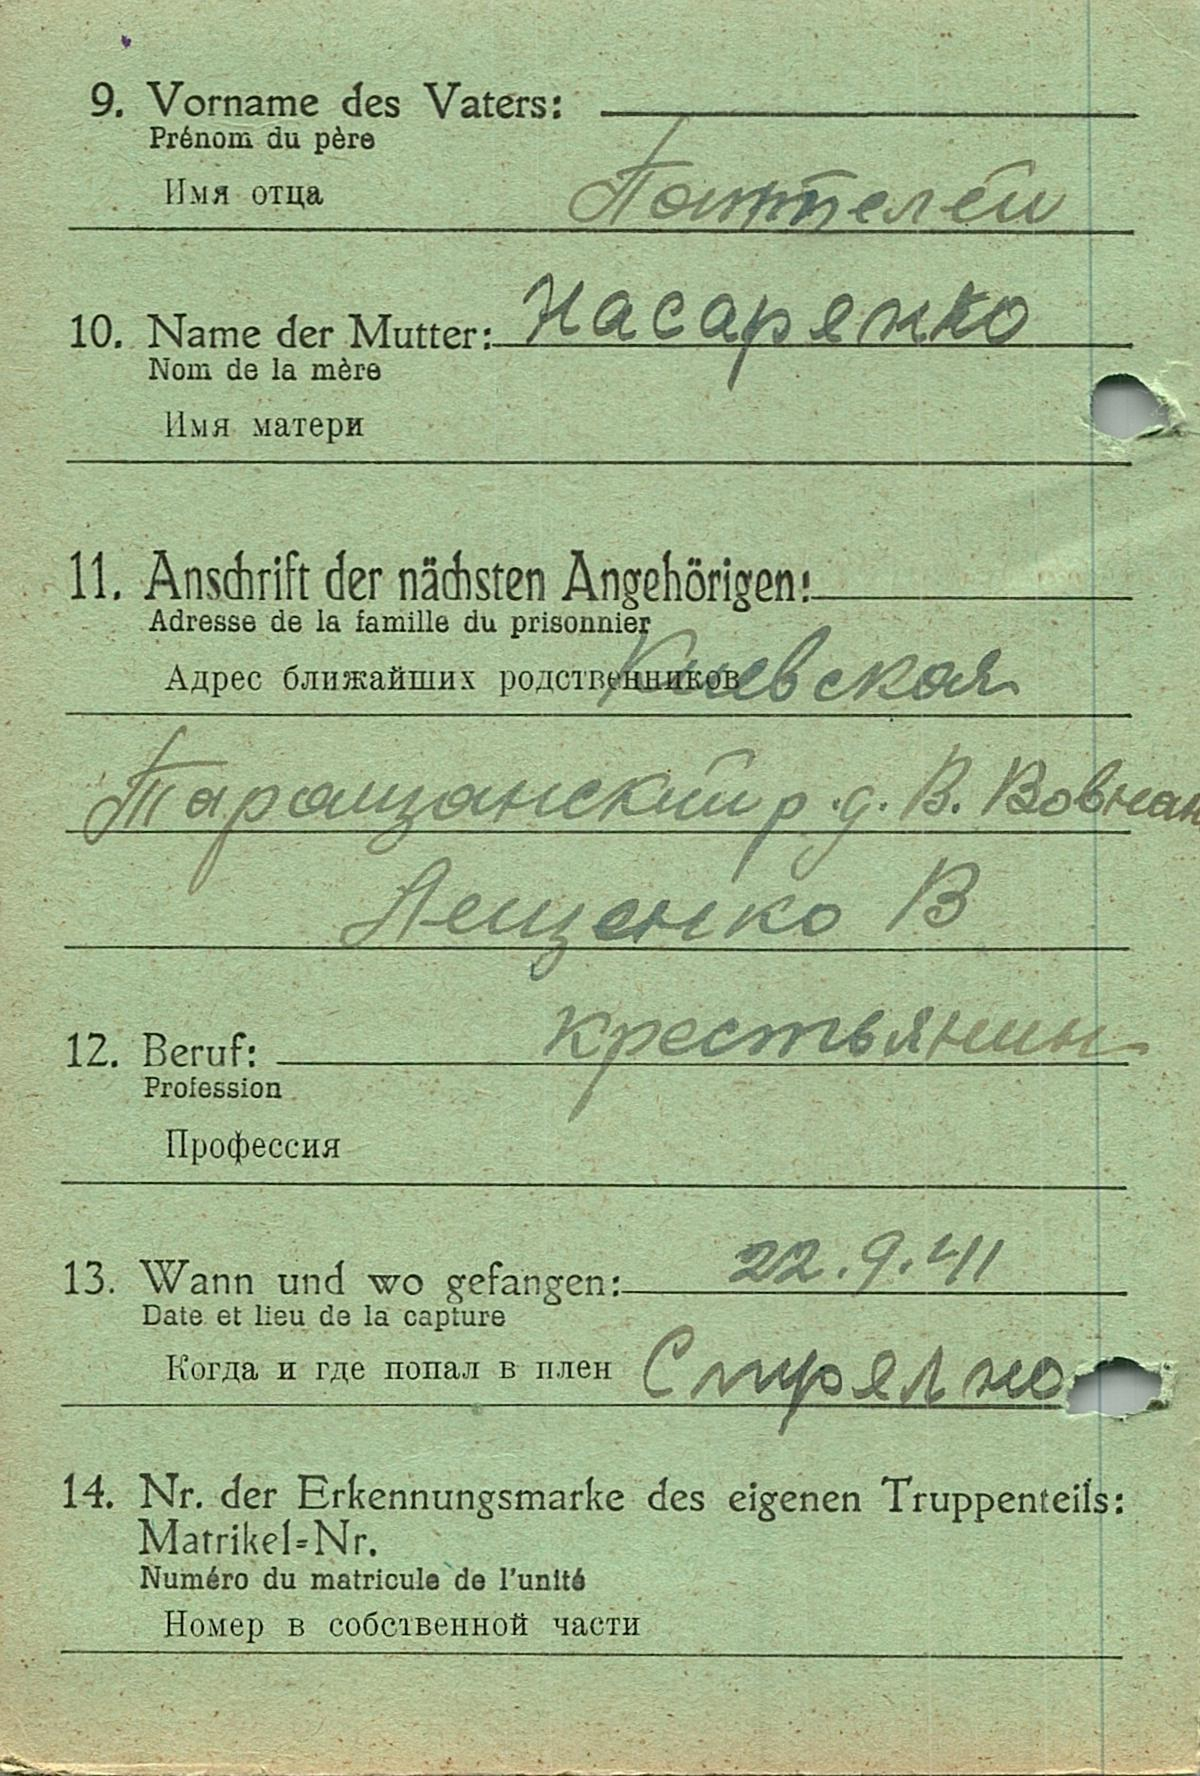 9. Vorname des Vaters:
Prénom du père
Имя отца Пантелей
10. Name der Mutter: Насаренко
Nom de la mère
Имя матери
11. Anschrift der nächsten Angehörigen:
Adresse de la famille du prisonnier
Адрес ближайших родственников Киевская
Таращанский р. д. В. Вовнан
Лещенко В
12. Beruf: крестьянин
Profession
Профессия
13. Wann und wo gefangen: 22.9.41
Date et lieu de la capture
Когда и где попал в плен
14. Nr. der Erkennungsmarke des eigenen Truppenteils:
Matrikel=Nr.
Numéro du matricule de l'unité
Номер в собственной части